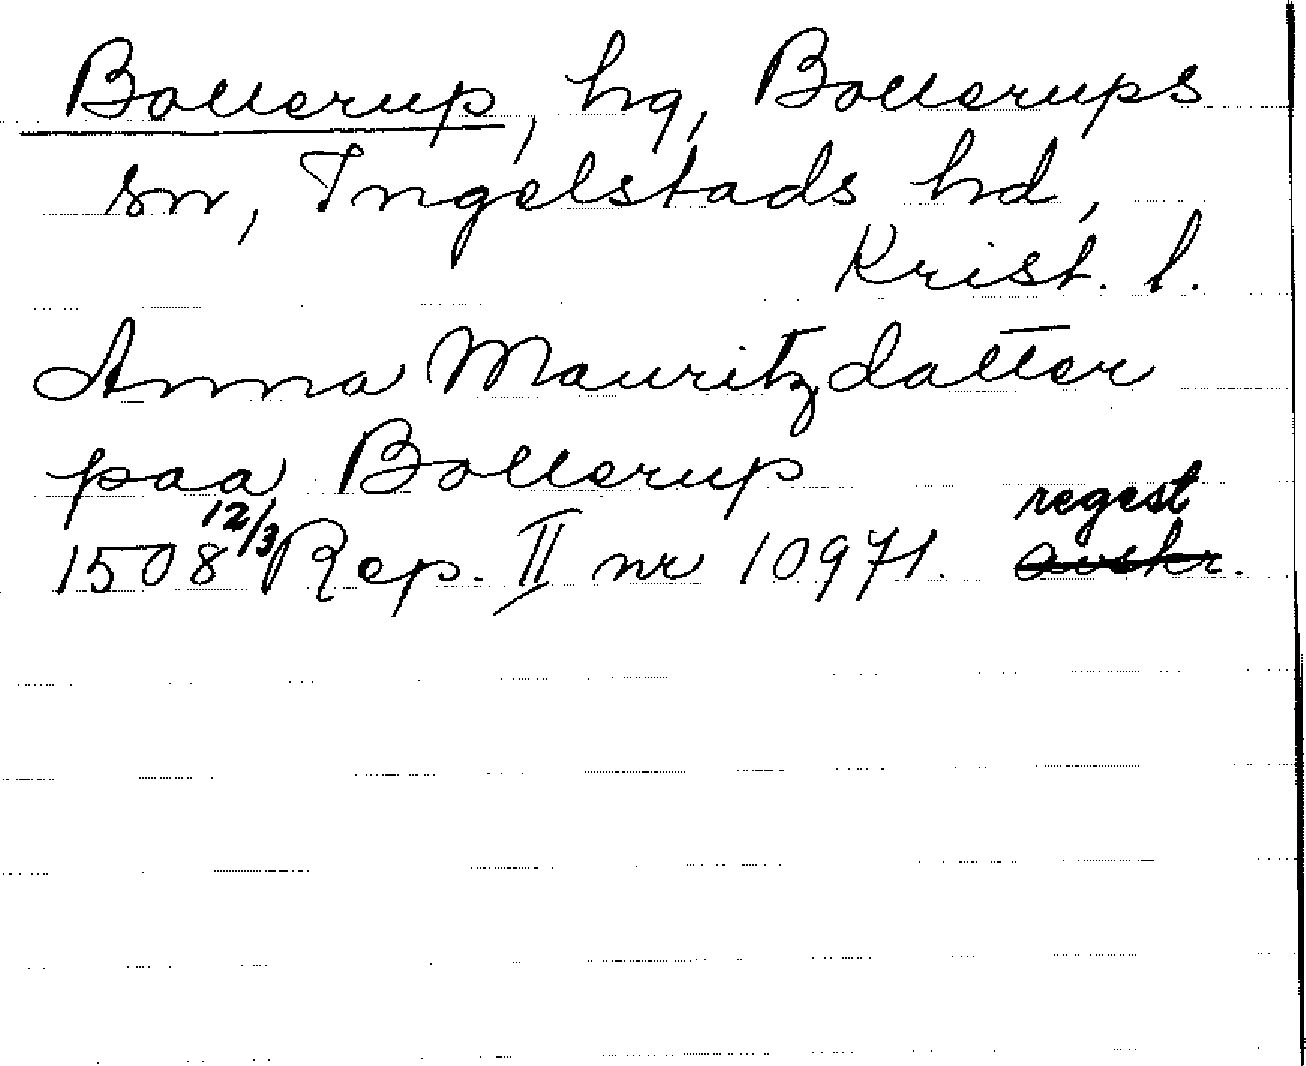 Bollerup, hg, Bollerups
sn, Ingelstads hd,
Krist. l.
Anna Mauritzdatter
paa Bollerup
1508 12/3 Rep. II nr 10971. regest
avskr.